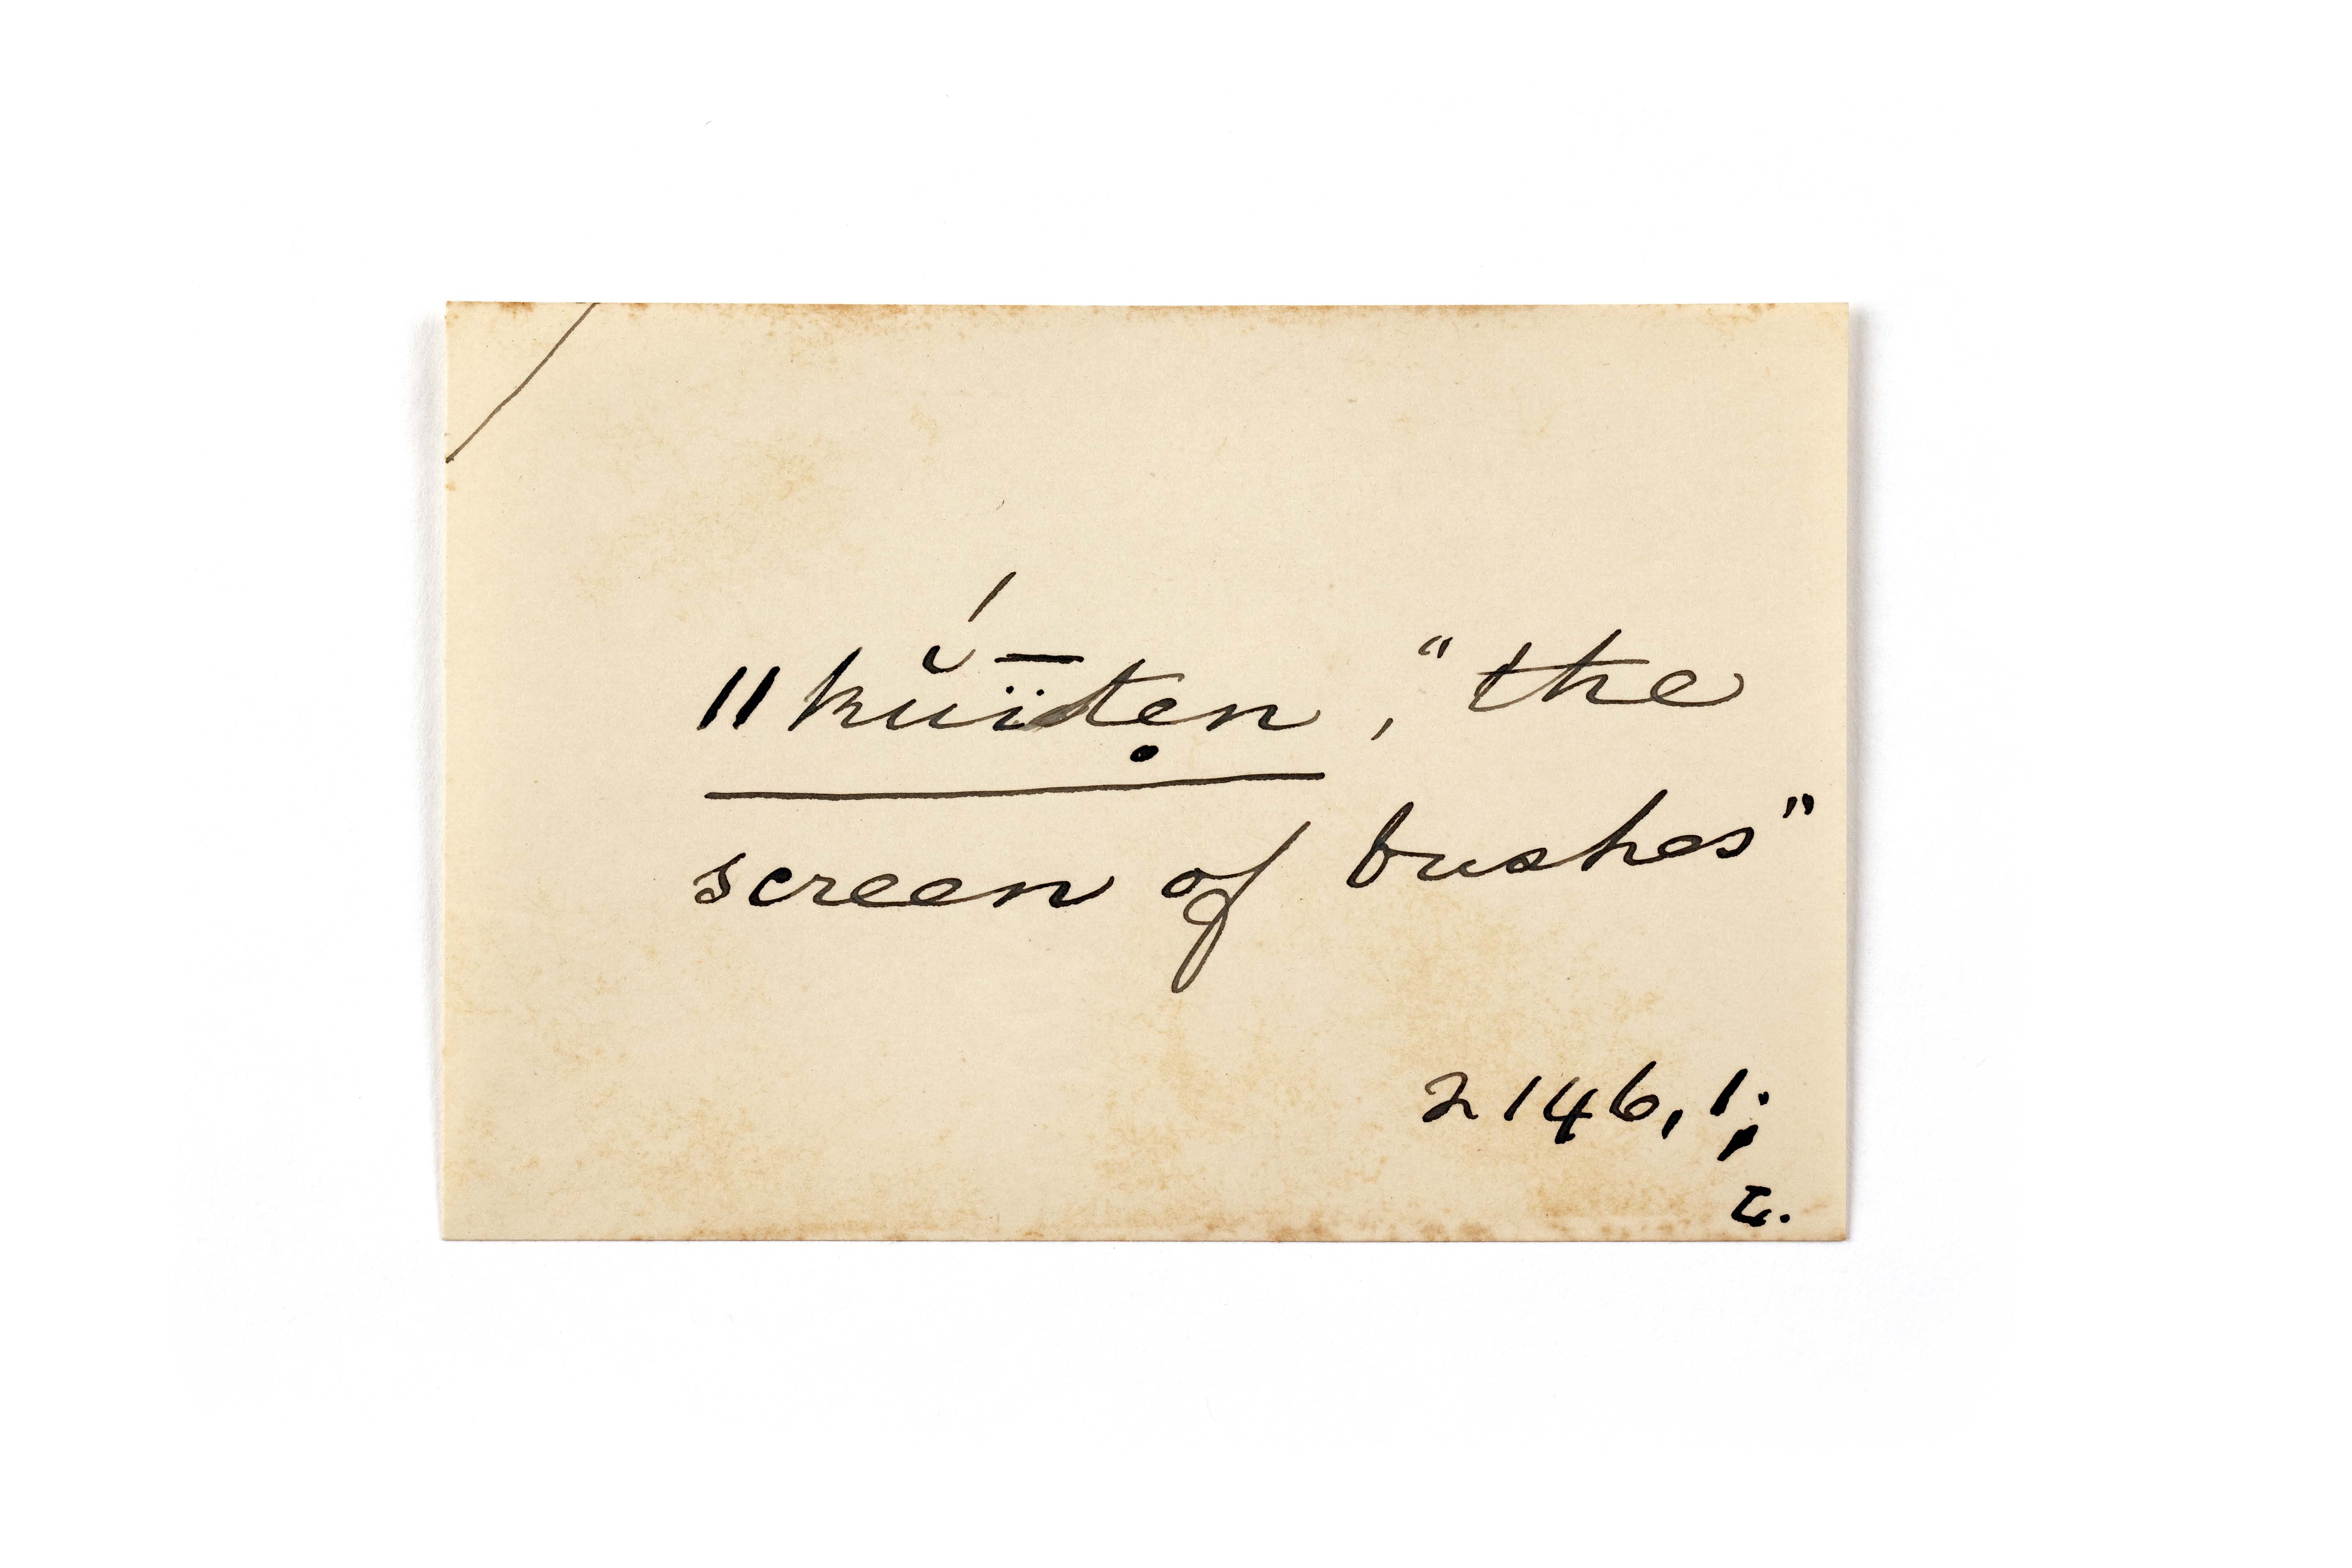 ǁkŭ́ï̄tẹn, "the
screen of bushes"
2146, 1;